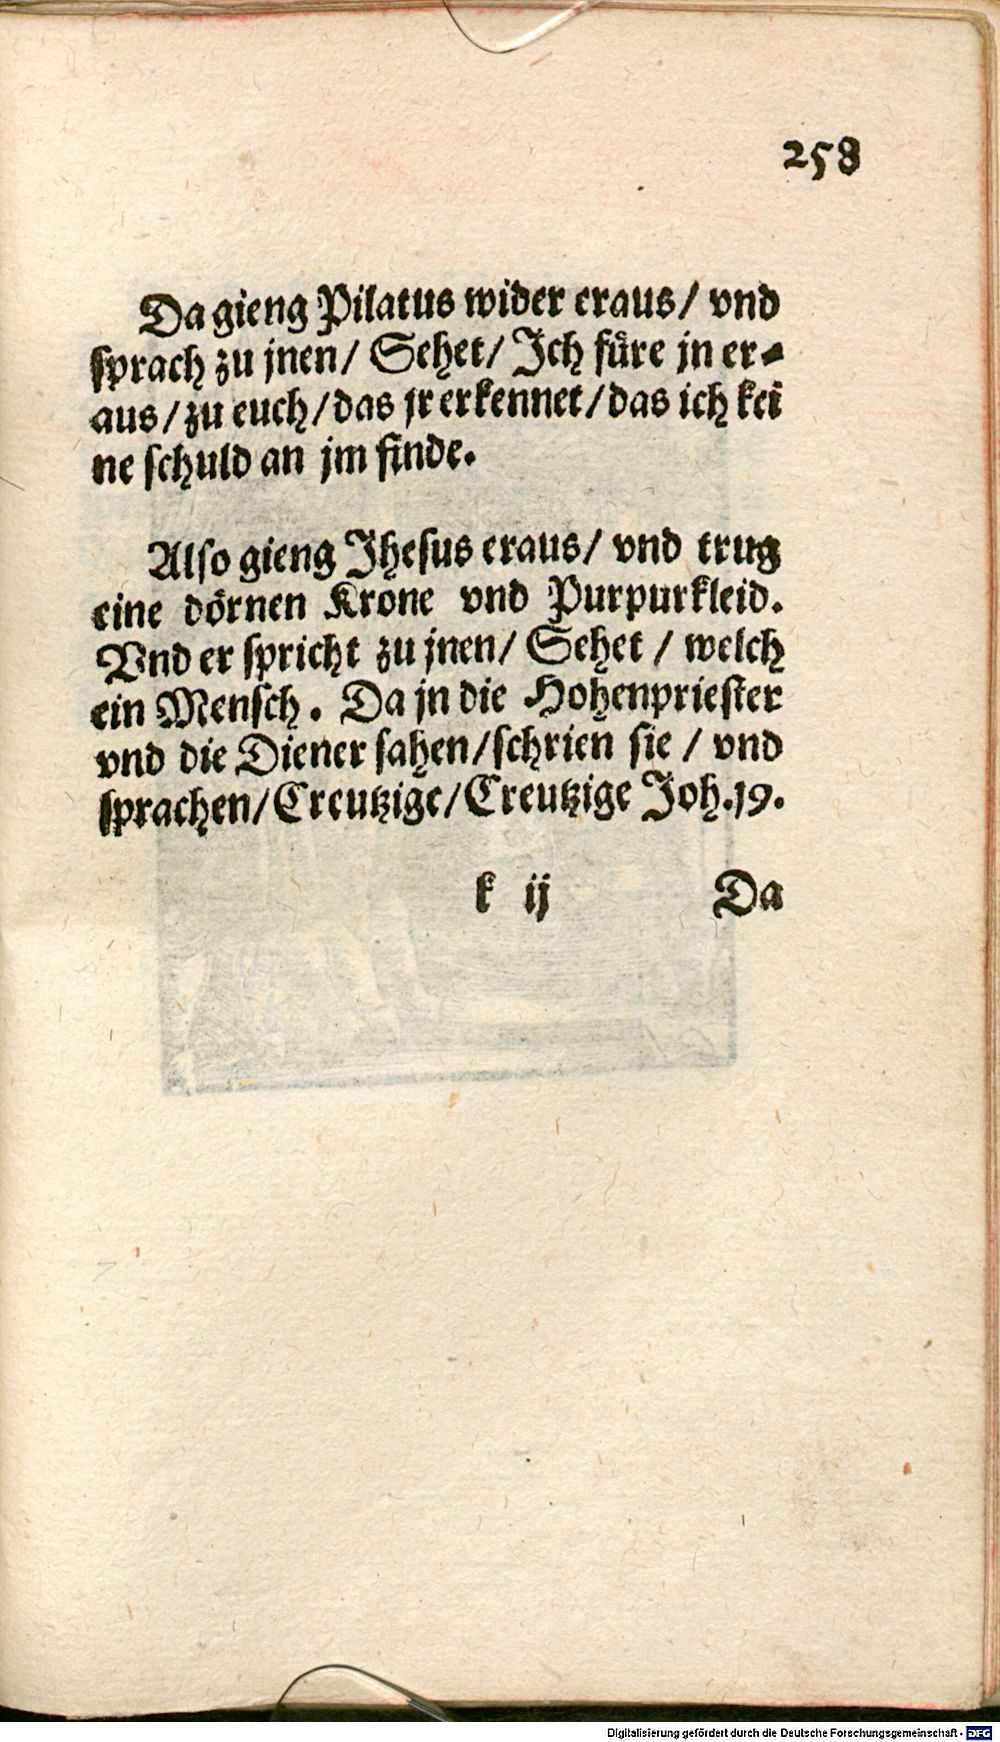 258
Da gieng Pilatus wider eraus / vnd
sprach zu jnen / Sehet / Jch füre jn er⸗
aus / zu euch / das jr erkennet / das ich kei
ne schuld an jm finde.
Also gieng Jhesus eraus / vnd trug
eine dörnen Krone vnd Purpurkleid.
Vnd er spricht zu jnen / Sehet / welch
ein Mensch. Da jn die Hohenpriester
vnd die Diener sahen / schrien sie / vnd
sprachen / Creutzige / Creutzige Joh.19.
k ij Da
Digitalisierung gefördert durch die Deutsche Forschungsgemeinschaft - DFG